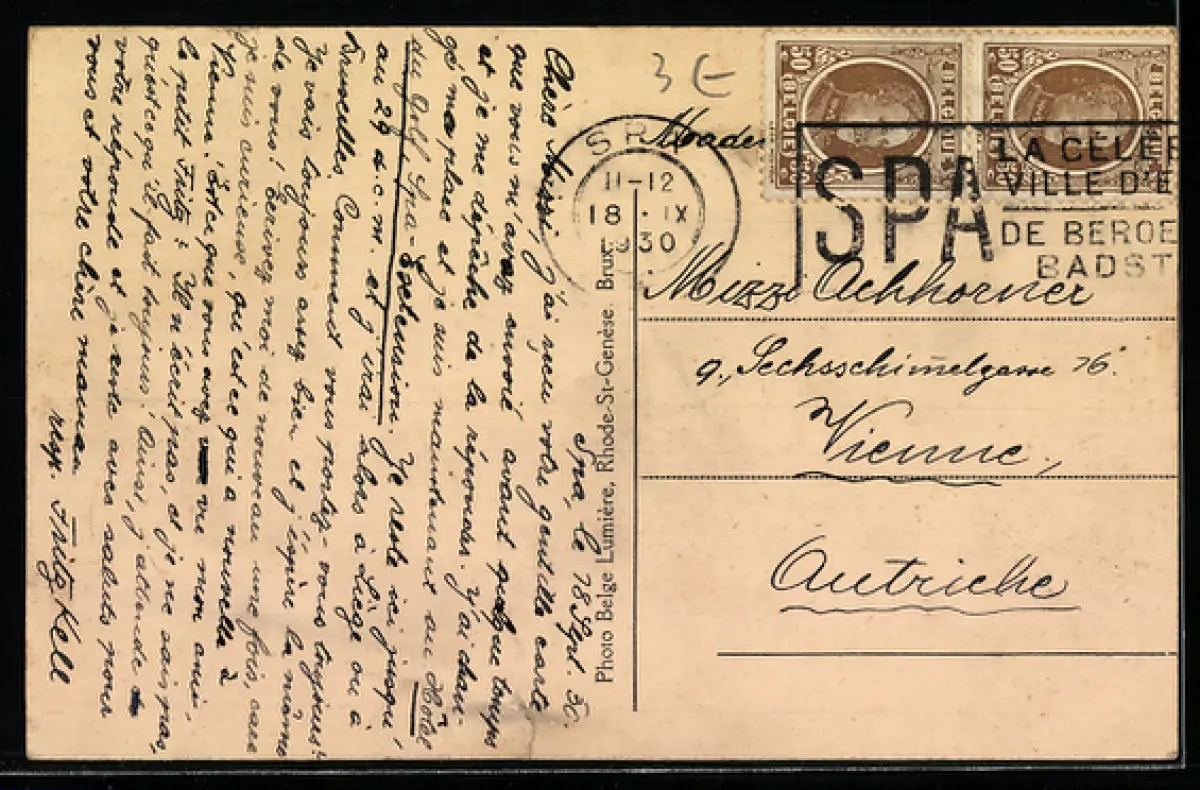 Spa, le 18 Sept. 30.
Chère Mizzi, j'ai reçu votre gentille carte
que vous m'avez envoié avant quelque temps
et je me dépêche de la répondre. J'ai chan-
gé ma place et je suis maintenant au Hôtel
du Golf, Spa-Extension. Je reste ici jusqu'
au 29 d.c.m. et j'irai alors à Liége ou à
Bruxelles. Comment vous portez-vous toujours?
Je vais toujours assez bien et j'espère la même
de vous! Ecrivez moi de nouveau une fois, car
je suis curieuse, qu'est ce qui a nouvelle à
Vienne! Est ce que vous avez vu mon ami,
le petit Fritz? Il n'écrit pas, et je ne sais pas,
qu'est ce qu'il fait toujours! Ainsi, j'attends
votre réponde et je reste avec saluts pour
vous et votre chère maman
resp. Fritz Kell
Photo Belge Lumière, Rhode-St-Genèse. Brux.
3 E
SP
11-12
18 · IX
1930
50 BELGIE BELGIQUE 50
50 BELGIE BELGIQUE 50
SPA
LA CELEB
VILLE D'E
DE BEROE
BADST
Mizzi Achhorner
9., Sechsschimmelgasse 76.
Vienne,
Autriche